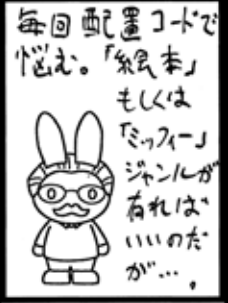 毎回配置コードで
悩む。「絵本」
もしくは
「ミッフィー」
ジャンルが
有れば
いいのだ
が…。